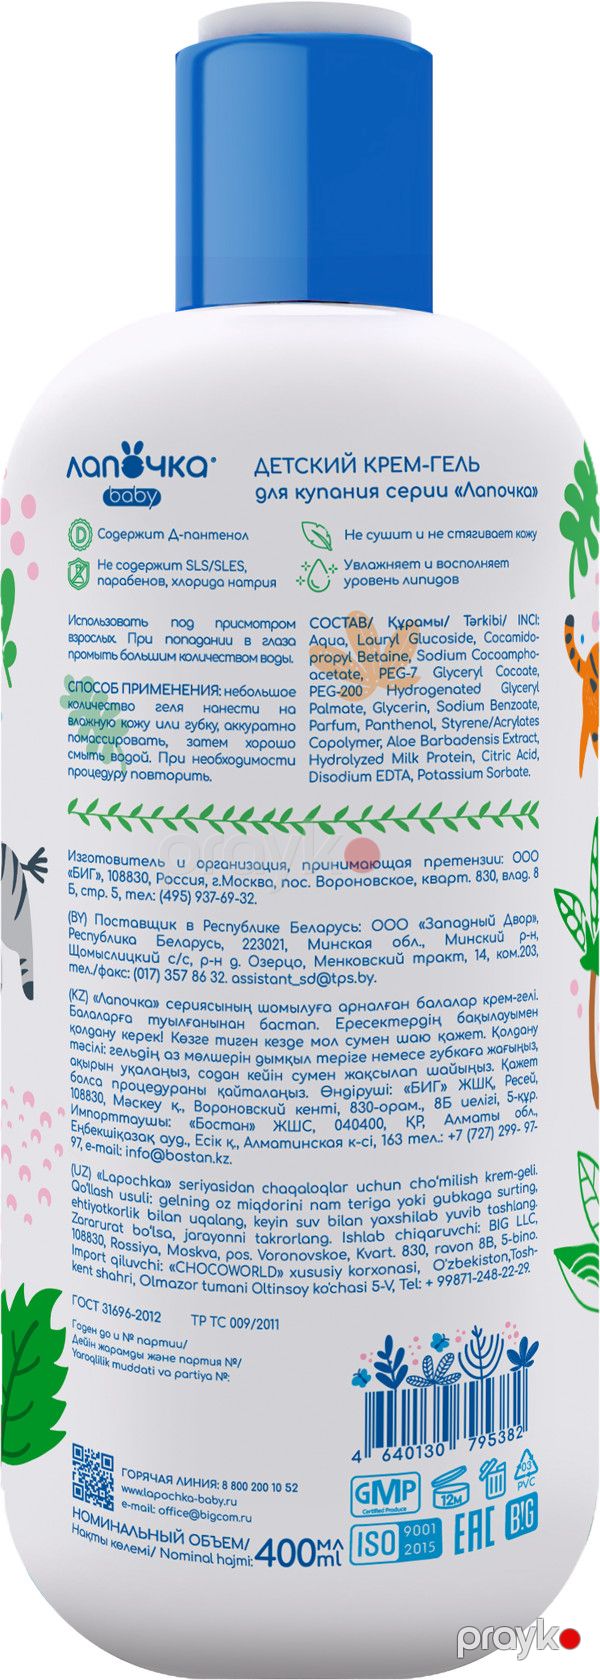 лапочка®
baby
ДЕТСКИЙ КРЕМ-ГЕЛЬ
для купания серии «Лапочка»
Содержит Д-пантенол
Не содержит SLS/SLES,
парабенов, хлорида натрия
Не сушит и не стягивает кожу
Увлажняет и восполняет
уровень липидов
Использовать под присмотром
взрослых. При попадании в глаза
промыть большим количеством воды.
СПОСОБ ПРИМЕНЕНИЯ: небольшое
количество геля нанести на
влажную кожу или губку, аккуратно
помассировать, затем хорошо
смыть водой. При необходимости
процедуру повторить.
СОСТАВ/ Құрамы/ Tərkibi/ INCI:
Aqua, Lauryl Glucoside, Cocamido-
propyl Betaine, Sodium Cocoampho-
acetate, PEG-7 Glyceryl Cocoate,
PEG-200 Hydrogenated Glyceryl
Palmate, Glycerin, Sodium Benzoate,
Parfum, Panthenol, Styrene/Acrylates
Copolymer, Aloe Barbadensis Extract,
Hydrolyzed Milk Protein, Citric Acid,
Disodium EDTA, Potassium Sorbate.
Изготовитель и организация, принимающая претензии: ООО
«БИГ», 108830, Россия, г.Москва, пос. Вороновское, кварт. 830, влад. 8
Б, стр. 5, тел: (495) 937-69-32.
(BY) Поставщик в Республике Беларусь: ООО «Западный Двор»,
Республика Беларусь, 223021, Минская обл., Минский р-н,
Щомыслицкий с/с, р-н д. Озерцо, Менковский тракт, 14, ком.203,
тел./факс: (017) 357 86 32. assistant_sd@tps.by.
(KZ) «Лапочка» сериясының шомылуға арналған балалар крем-гелі.
Балаларға туылғанынан бастап. Ересектердің бақылауымен
қолдану керек! Көзге тиген кезде мол сумен шаю қажет. Қолдану
тәсілі: гельдің аз мөлшерін дымқыл теріге немесе губкаға жағыңыз,
ақырын уқалаңыз, содан кейін сумен жақсылап шайыңыз. Қажет
болса процедураны қайталаңыз. Өндіруші: «БИГ» ЖШҚ, Ресей,
108830, Мәскеу қ., Вороновский кенті, 830-орам., 8Б иелігі, 5-құр.
Импорттаушы: «Бостан» ЖШС, 040400, ҚР, Алматы обл.,
Еңбекшіқазақ ауд., Есік қ., Алматинская к-сі, 163 тел.: +7 (727) 299- 97-
97, e-mail: info@bostan.kz.
(UZ) «Lapochka» seriyasidan chaqaloqlar uchun cho'milish krem-geli.
Qo'llash usuli: gelning oz miqdorini nam teriga yoki gubkaga surting,
ehtiyotkorlik bilan uqalang, keyin suv bilan yaxshilab yuvib tashlang.
Zararurat bo'lsa, jarayonni takrorlang. Ishlab chiqaruvchi: BIG LLC,
108830, Rossiya, Moskva, pos. Voronovskoe, Kvart. 830, ravon 8B, 5-bino.
Import qiluvchi: «CHOCOWORLD» xususiy korxonasi, O'zbekiston,Tosh-
kent shahri, Olmazor tumani Oltinsoy ko'chasi 5-V, Tel: + 99871-248-22-29.
ГОСТ 31696-2012 ТР ТС 009/2011
Годен до и № партии/
Дейін жарамды және партия №/
Yaroqlilik muddati va partiya №:
4 640130 795382
ГОРЯЧАЯ ЛИНИЯ: 8 800 200 10 52
www.lapochka-baby.ru
e-mail: office@bigcom.ru
НОМИНАЛЬНЫЙ ОБЪЕМ/
Нақты көлемі/ Nominal hajmi: 400 мл
ml
GMP
Certified Produce
12M
03
PVC
ISO 9001
2015
EAC
B!G
prayko
prayko